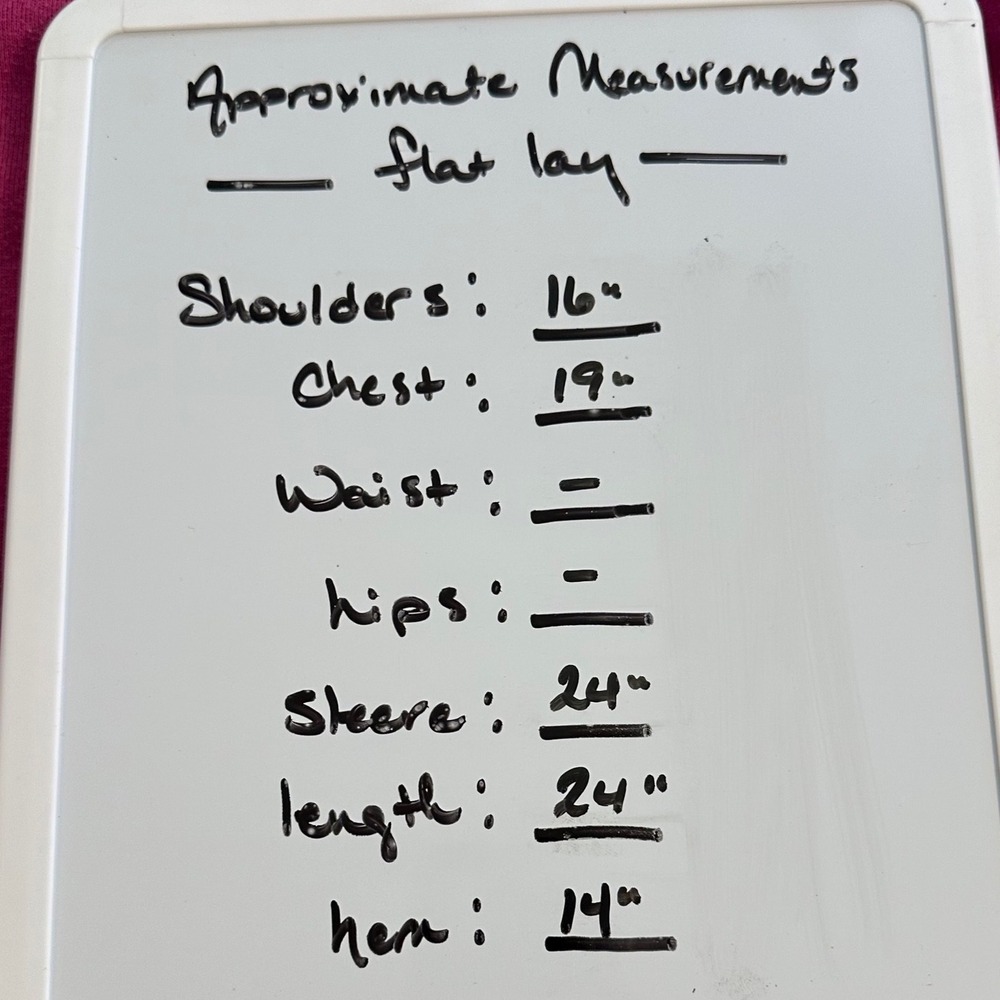 Approximate Measurements
— flat lay —
Shoulders: 16"
Chest: 19"
Waist: -
hips: -
Sleeve: 24"
length: 24"
hem: 14"